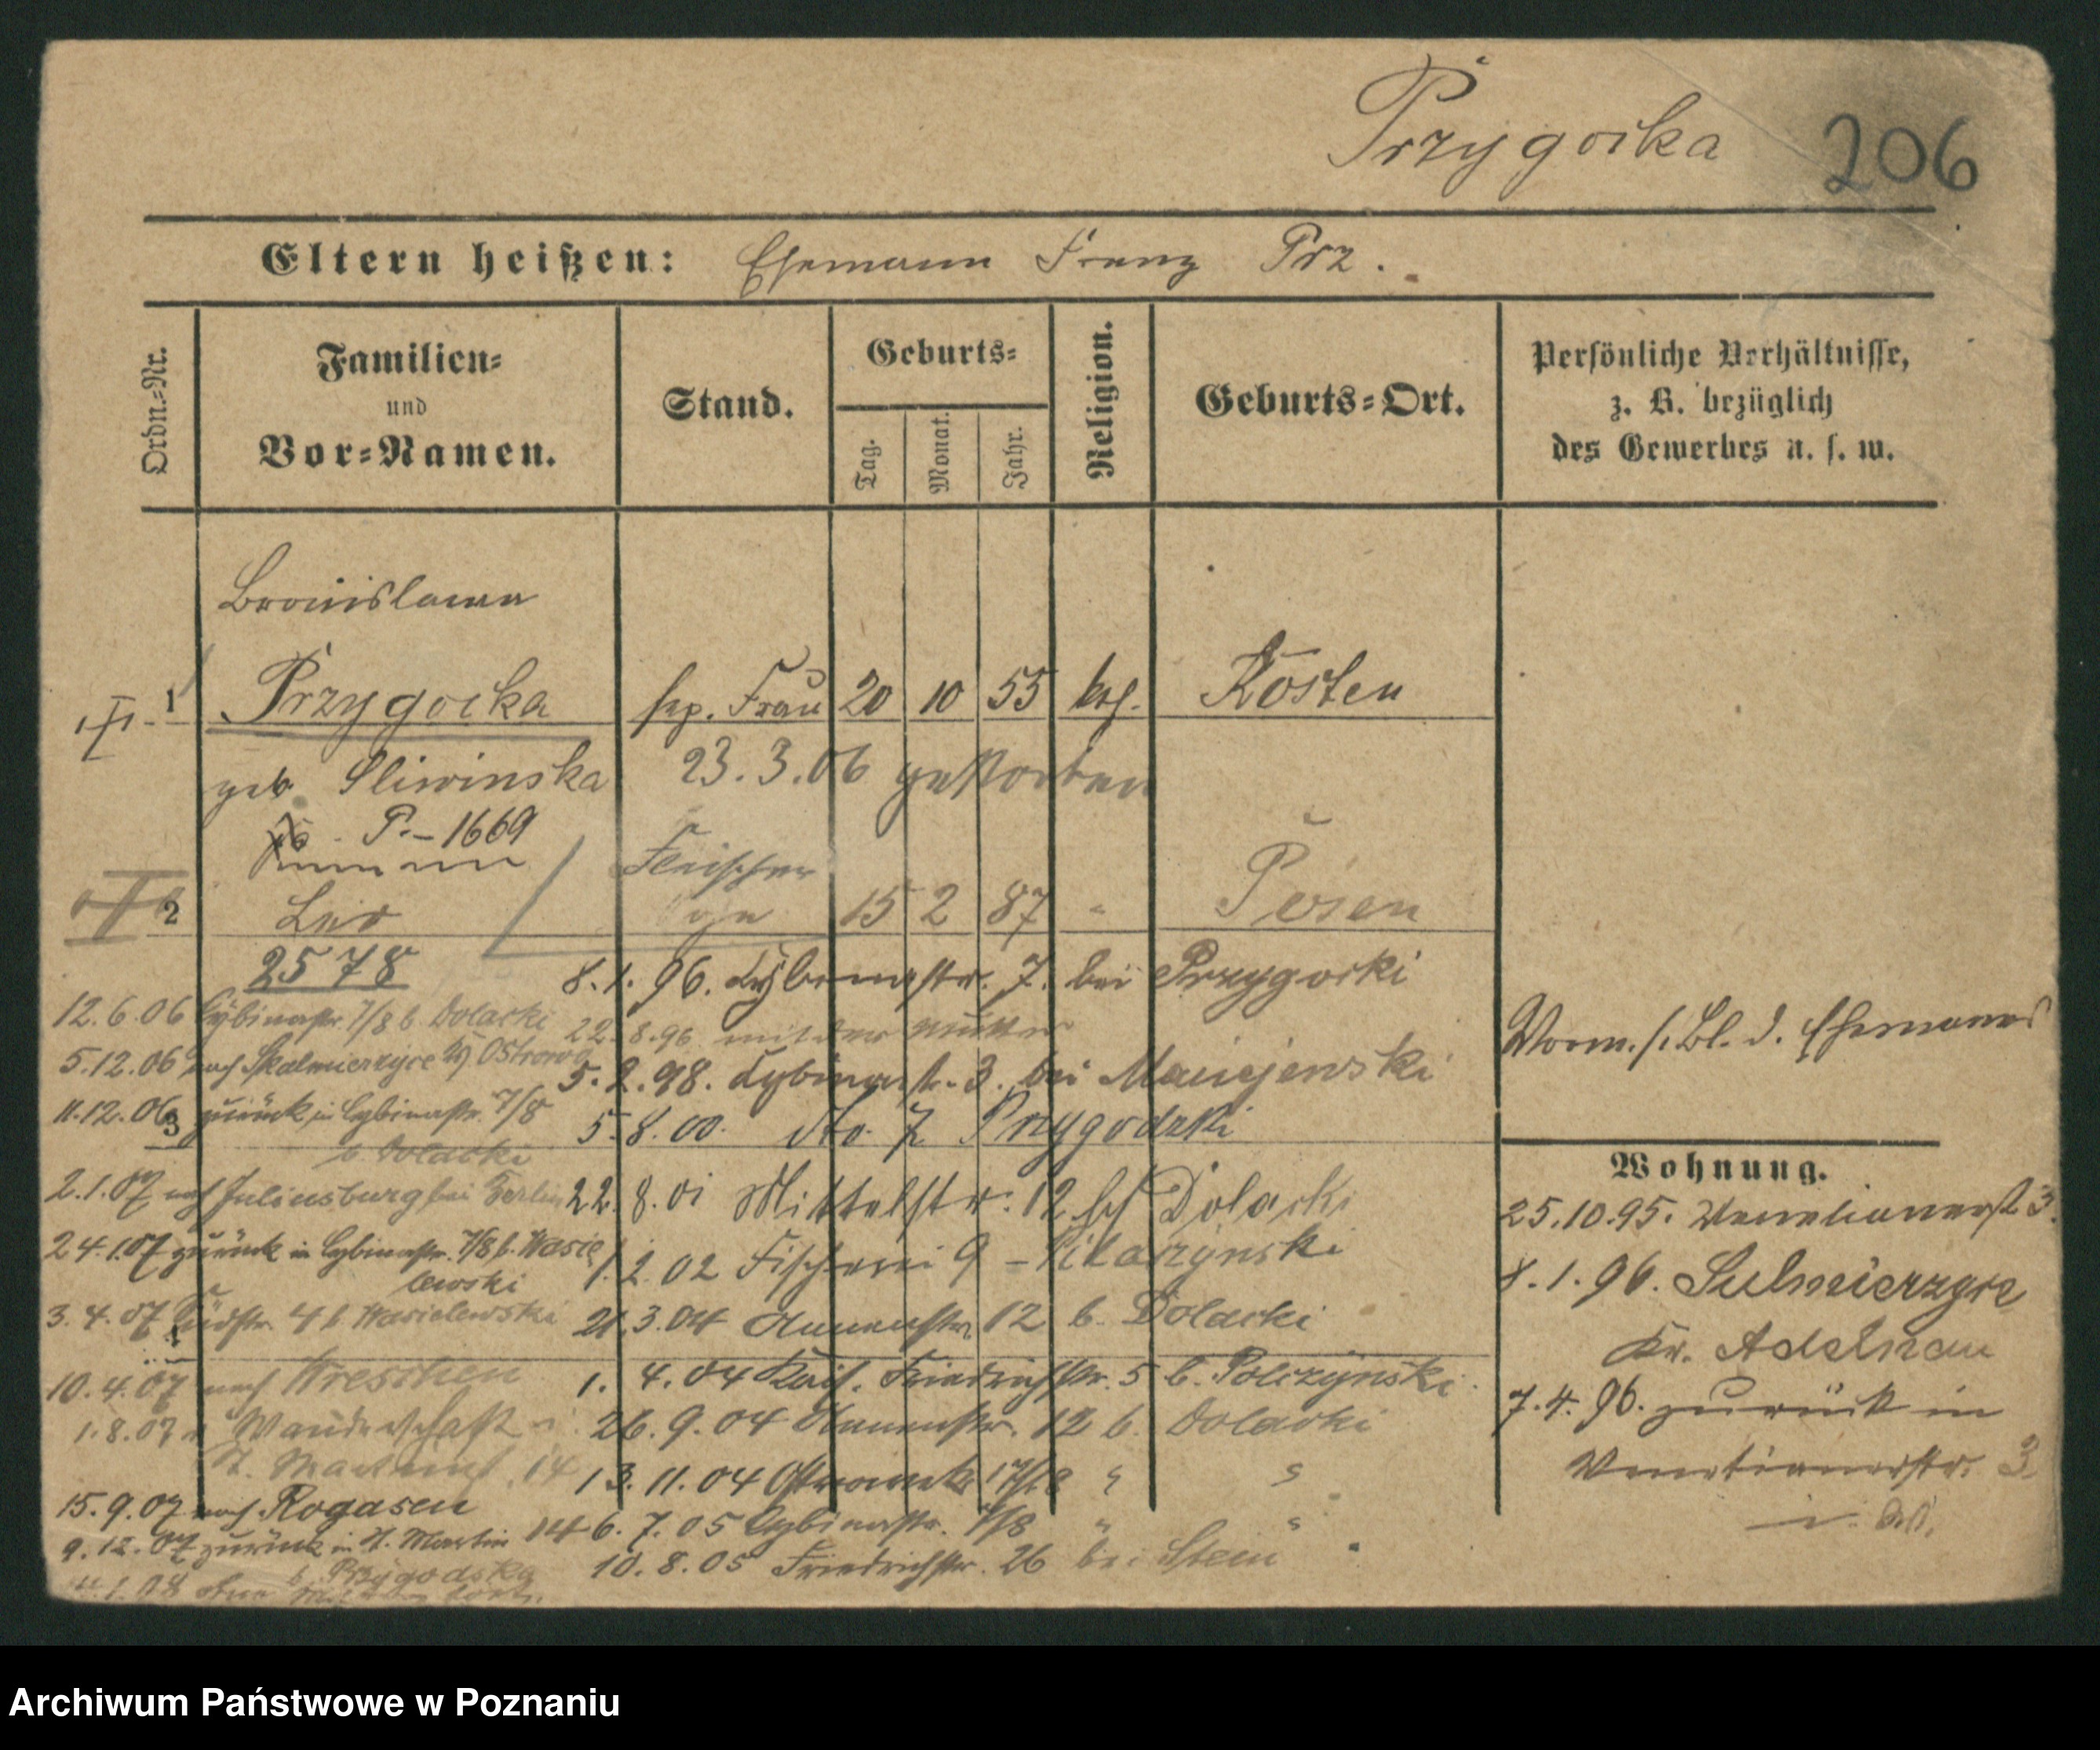 Przygocka 206
Eltern heißen: Ehemann Franz Prz.
Ordn.-Nr.
Familien-
und
Vor-Namen.
Stand.
Geburts-
Tag.
Monat.
Jahr.
Religion.
Geburts-Ort.
Persönliche Verhältnisse,
z. B. bezüglich
des Gewerbes u. s. w.
Bronislawa
1 Przygocka sep. Frau 20 10 55 kth. Kosten
geb. Sliwinska 23.3.06 gestorben
P.-1669
Fleischer
2 Leo 15 2 87 " Posen
2578
8.1.96. Cybinastr. 7. bei Przygocki
22.8.96 mit der Mutter
5.2.98. Cybinastr. 3. bei Maciejewski
5.8.00. dto. 7 Przygodzki
22.8.01 Mittelstr. 12 bei Dolacki
1.2.02 Fischerei 9 - Pilarzynski
21.3.04 Annenstr 12 b. Dolacki
1.4.04 Kais. Friedrichstr. 5 b. Polczynski
26.9.04 Annenstr. 12 b. Dolacki
13.11.04 Ostrowek 17/18 " "
6.7.05 Cybinastr. 7/8 " "
10.8.05 Friedrichstr. 26 bei Stein
12.6.06 Cybinastr 7/8 b. Dolacki
5.12.06 nach Skalmierzyce Kr. Ostrowo
11.12.06 zurück in Cybinastr. 7/8
b. Dolacki
3
2.1.07 nach Juliusburg bei Berlin
24.1.07 zurück in Cybinastr. 7/8 b. Wasie
lewski
3.4.07 Südstr. 4 b Wasielewski
4
10.4.07 nach Wreschen
1.8.07 v. Wanderschaft in
St. Martinst. 14
15.9.07 nach Rogasen
9.12.07 zurück in St. Martin 14
b. Przygodska
Vorm. s. Bl. d. Ehemannes
Wohnung.
25.10.95. Venetianerst 3.
8.1.96. Sulmierzyce
Kr. Adelnau
7.4.96. zurück in
Venetianerstr. 3
Archiwum Państwowe w Poznaniu